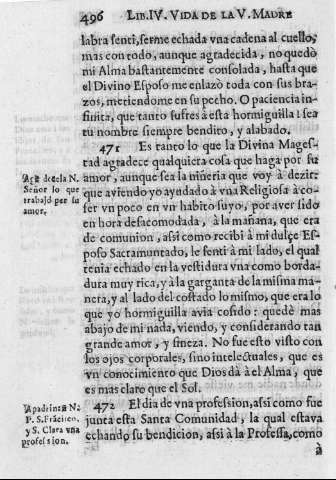 496 LIB.IV. VIDA DE LA V. MADRE
labra senti, serme echada vna cadena al cuello,
mas con todo, aunque agradecida, no quedò
mi Alma bastantemente consolada, hasta que
el Divino Esposo me enlazò toda con sus bra-
zos, metiendome en su pecho. O paciencia in-
finita, que tanto sufres à esta hormiguilla! sea
tu nombre siempre bendito, y alabado.
471 Es tanto lo que la Divina Mages-
tad agradece qualquiera cosa que haga por su
amor, aunque sea la niñeria que voy à dezir:
que aviendo yo ayudado à vna Religiosa à co-
ser vn poco en vn habito suyo, por aver sido
en hora desacomodada, à la mañana, que era
de comunion, assi como recibi à mi dulçe Es-
poso Sacramentado, le senti à mi lado, el qual
tenia echado en la vestidura vna como borda-
dura muy rica, y à la garganta de la misma ma-
nera, y al lado del costado lo mismo, que era lo
que yo hormiguilla avia cosido: quedè mas
abajo de mi nada, viendo, y considerando tan
grande amor, y fineza. No fue esto visto con
los ojos corporales, sino intelectuales, que es
vn conocimiento que Dios dà à el Alma, que
es mas claro que el Sol.
472 El dia de vna profession, assi como fue
junta esta Santa Comunidad, la qual estava
echando su bendicion, assi à la Professa, como
à
Agradecela N.
Señor lo que
trabajò por su
amor.
Apadrinan N.
P. S. Francisco,
y S. Clara vna
profession.